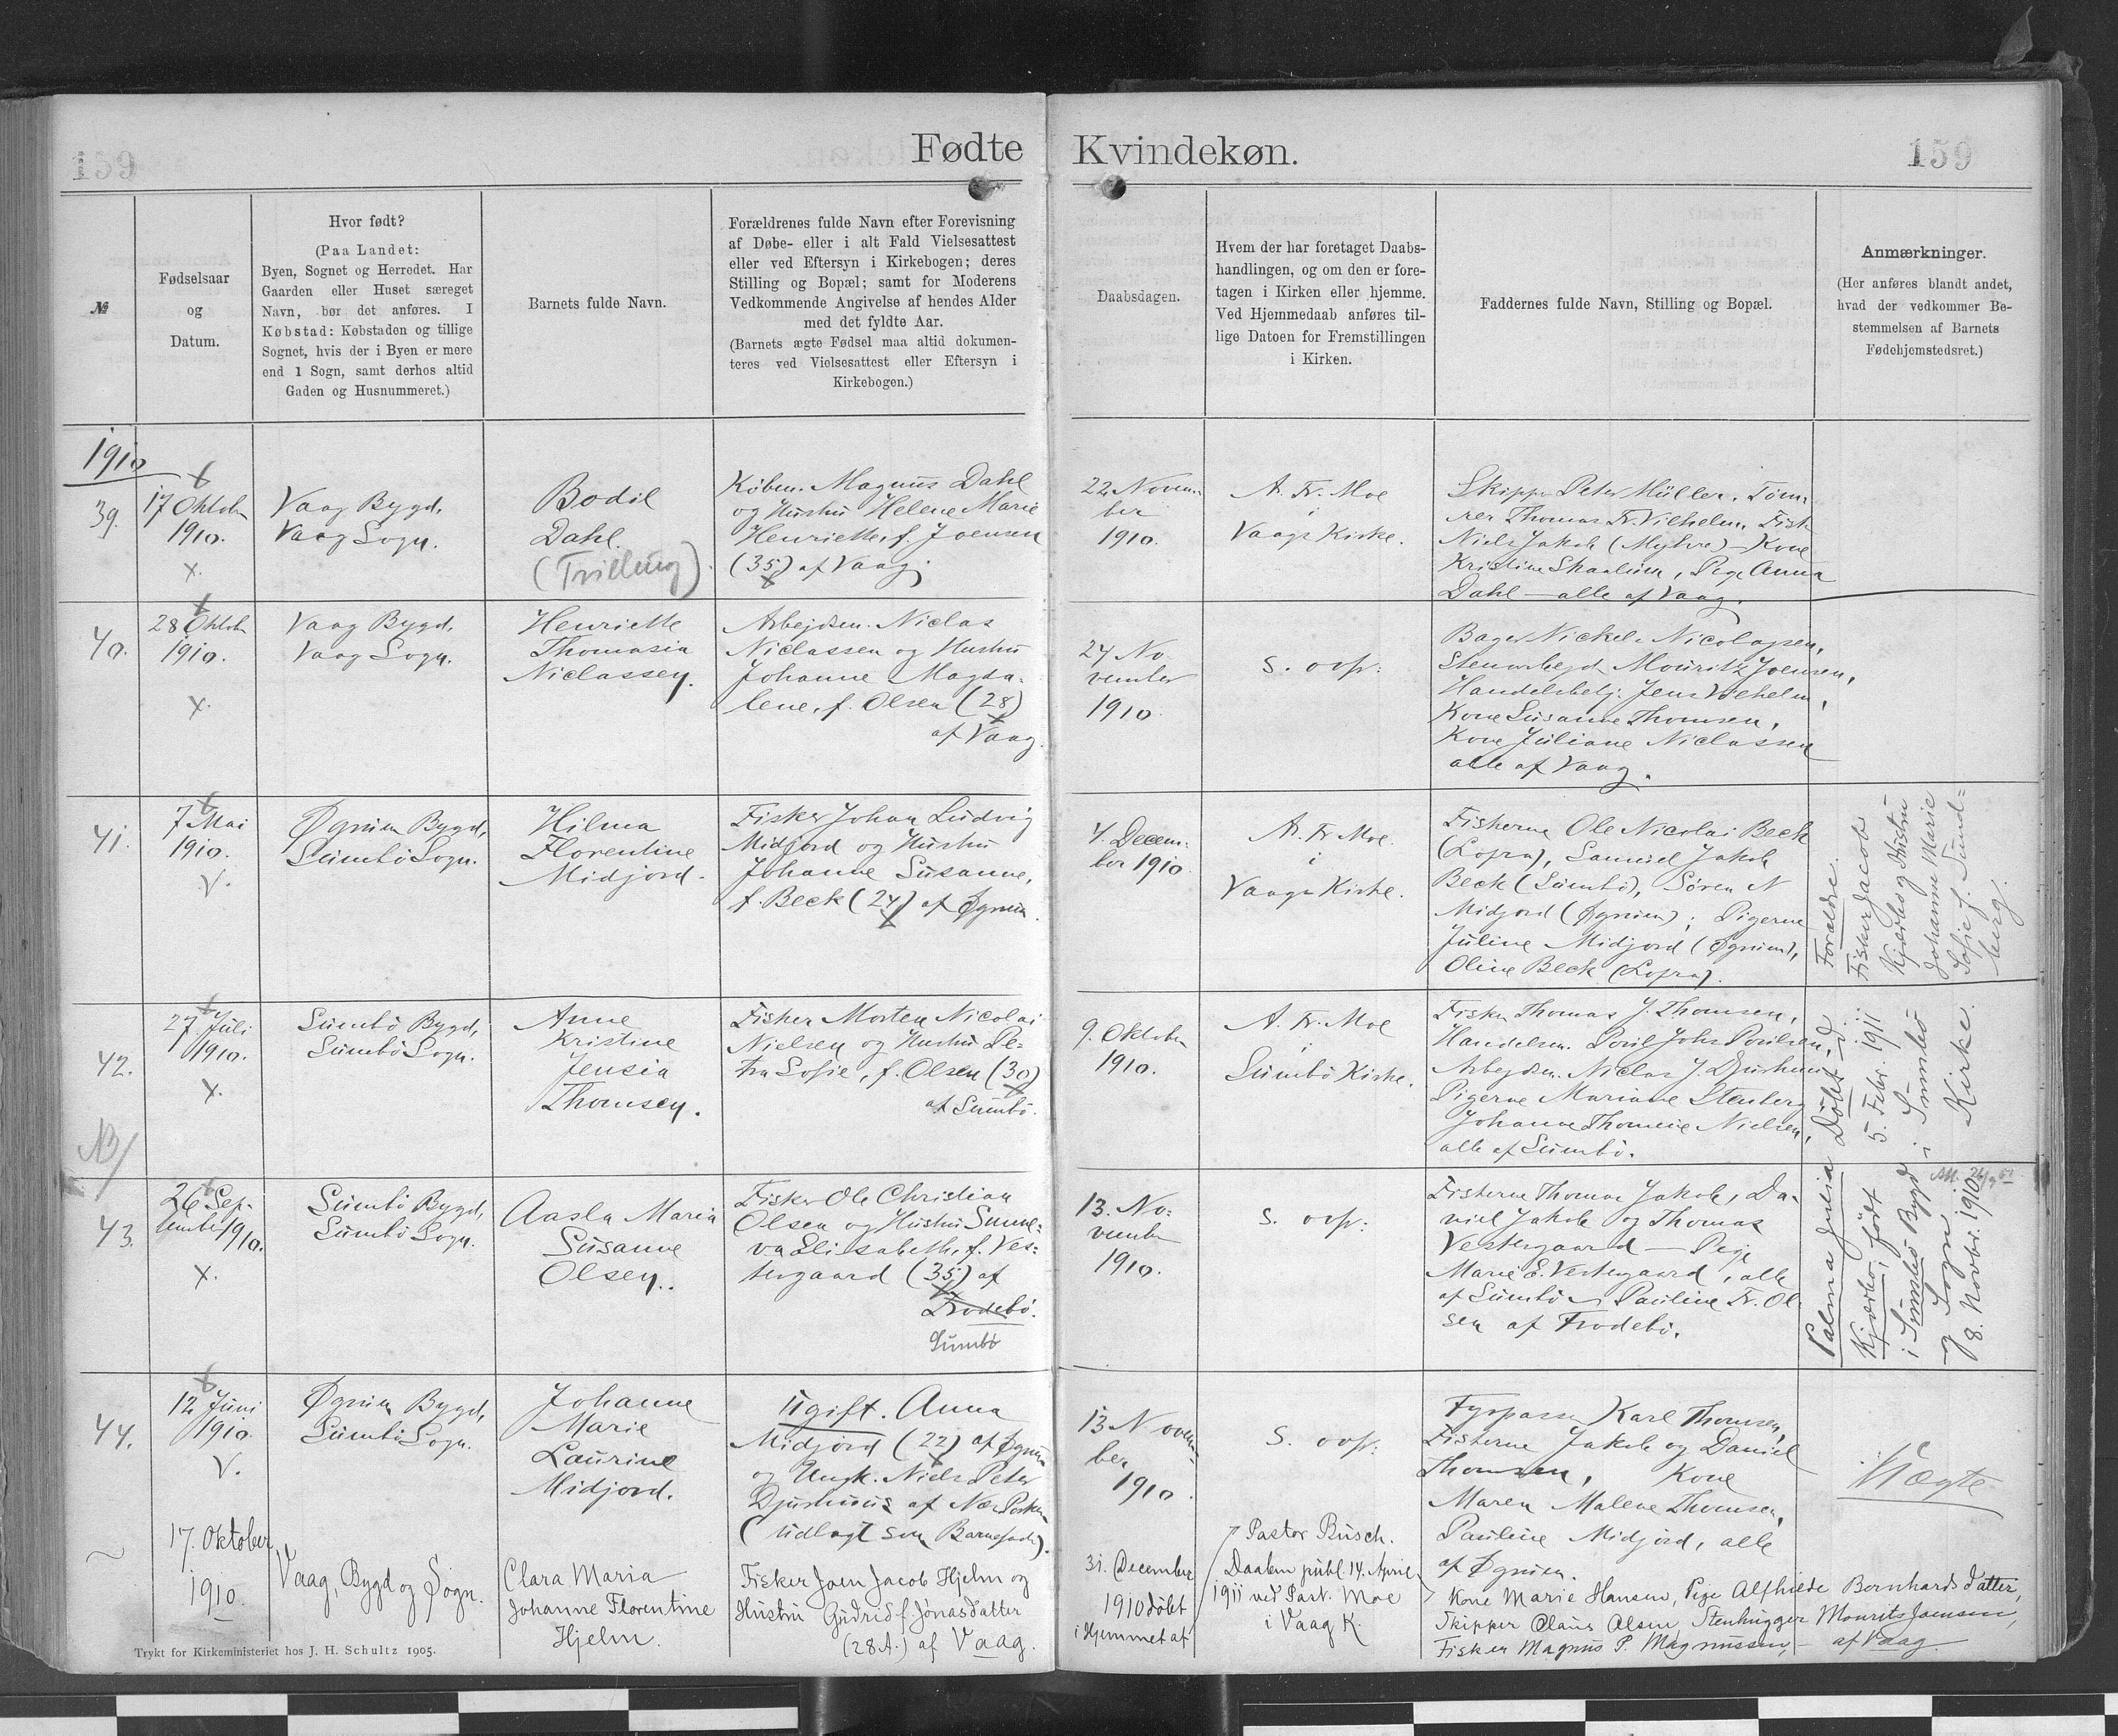 159
Fødte
Kvindekøn.
159
№
Fødselsaar
og
Datum.
Hvor født?
(Paa Landet:
Byen, Sognet og Herredet. Har
Gaarden eller Huset særeget
Navn, bør det anføres. I
Købstad: Købstaden og tillige
Sognet, hvis der i Byen er mere
end 1 Sogn, samt derhos altid
Gaden og Husnummeret.)
Barnets fulde Navn.
Forældrenes fulde Navn efter Forevisning
af Døbe- eller i alt Fald Vielsesattest
eller ved Eftersyn i Kirkebogen; deres
Stilling og Bopæl; samt for Moderens
Vedkommende Angivelse af hendes Alder
med det fyldte Aar.
(Barnets ægte Fødsel maa altid dokumen-
teres ved Vielsesattest eller Eftersyn i
Kirkebogen.)
Daabsdagen.
Hvem der har foretaget Daabs-
handlingen, og om den er fore-
tagen i Kirken eller hjemme.
Ved Hjemmedaab anføres til-
lige Datoen for Fremstillingen
i Kirken.
Faddernes fulde Navn, Stilling og Bopæl.
Anmærkninger.
(Her anføres blandt andet,
hvad der vedkommer Be-
stemmelsen af Barnets
Fødehjemstedsret.)
1910
39.
17 Oktober
1910.
x.
Vaag Bygd,
Vaag Sogn.
Bodil
Dahl.
(Trilling)
Købm. Magnus Dahl
og Hustru Helene Marie
Henriette, f. Joensen
(35) af Vaag.
22 Novem-
ber
1910.
A. Fr. Moe
i
Vaags Kirke.
Skipper Peter Müller, Tøm-
rer Thomas Fr. Vilhelm, Fisk
Niels Jakob (Myhre) - Kone
Kristine Skaalum, Pige Anna
Dahl - alle af Vaag.
40.
28 Oktob
1910.
x.
Vaag Bygd,
Vaag Sogn.
Henriette
Thomasia
Niclassen.
Arbejdsm. Niclas
Niclassen og Hustru
Johanne Magda-
lene, f. Olsen (28)
af Vaag.
24 No-
vember
1910.
s. ovf:
Bager Nickels Nicolajsen,
Stenarbejd. Mouritz Joensen,
Handelsbetj. Jens Vilhelm,
Kone Susanne Thomsen,
Kone Juliane Niclassen
alle af Vaag.
41.
7 Mai
1910.
V.
Øgnum Bygd,
Sumbö Sogn.
Hilma
Florentine
Midjord.
Fisker Johan Ludvig
Midjord og Hustru
Johanne Susanne,
f. Beck (24) af Øgnum.
4. Decem-
ber 1910
A. Fr. Moe.
i
Vaags Kirke.
Fiskerne Ole Nicolai Beck
(Lopra), Samuel Jakob
Beck (Sumbö), Søren N
Midjord (Øgnum); Pigerne
Juline Midjord (Øgnum),
Oline Beck (Lopra).
Forældre.
Fisker Jacob
Kjærbo og Hustru
Johanne Marie
Sofie f. Sund-
berg.
42.
27. Juli
1910.
x.
Sumbö Bygd,
Sumbö Sogn.
Anne
Kristine
Jensia
Thomsen.
Fisker Morten Nicolai
Nielsen og Hustru Pe-
tra Sofie, f. Olsen (30)
af Sumbö.
9. Oktober
1910.
A. Fr. Moe
i
Sumbö Kirke.
Fisker Thomas J. Thomsen,
Handelsm. Poul Johs Poulsen,
Arbejdsm. Niclas J. Djurhuus
Pigerne Mariane Stenberg
Johanne Thomine Nielsen,
alle af Sumbö.
NB/
43.
26 Sep-
tember 1910.
x.
Sumbö Bygd,
Sumbö Sogn.
Aasla Maria
Susanne
Olsen.
Fisker Ole Christian
Olsen og Hustru Sunne-
va Elisabeth, f. Ves-
tergaard (35) af
Frodebö.
Sumbö
13. No-
vember
1910.
s. ovf:
Fiskerne Thomas Jakob, Da-
niel Jakob og Thomas
Vestergaard - Pige
Marie E. Vestergaard, alle
af Sumbö, Pauline Fr. Ol-
sen af Frodebö.
Palma Julia Döbt d.
Kjærbo, født 5. Febr. 1911
i Sumbö Bygd i Sumbö
og Sogn Kirke.
8. Novbr. 1910
44.
12 Juni
1910.
V.
Øgnum Bygd,
Sumbö Sogn.
Johanne
Marie
Laurine
Midjord.
Ugift. Anna
Midjord (22) af Øgnum
og Ungk. Niels Peter
Djurhuus af Næs
(udlagt som Barnefader).
13 Novem-
ber
1910.
s. ovf:
Fyrpasser Karl Thomsen,
Fiskerne Jakob og Daniel
Thomsen, Kone
Maren Malene Thomsen,
Pauline Midjord, alle
af Øgnum.
Uægte
~
17. Oktober
1910
Vaag, Bygd og Sogn.
Clara Maria
Johanne Florentine
Hjelm.
Fisker Joen Jacob Hjelm og
Hustru Gudrid f. Jonasdatter
(28 A.) af Vaag.
31. December
1910 döbt
i Hjemmet af
Pastor Busch.
Daaben publ. 14. April
1911 ved Past. Moe
i Vaag K.
Kone Marie Hansen, Pige Alfhilde Bernhardsdatter,
Skipper Claus Olsen, Stenhugger Mourits Joensen,
Fisker Magnus P. Magnussen, - af Vaag.
Trykt for Kirkeministeriet hos J. H. Schultz 1905.